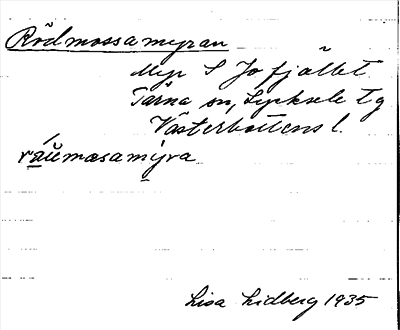 Rödmossamyran
Myr S Jofjället
Tärna sn, Lycksele tg
Västerbottens l.
ráu̯masamyra
Lisa Lidberg 1935